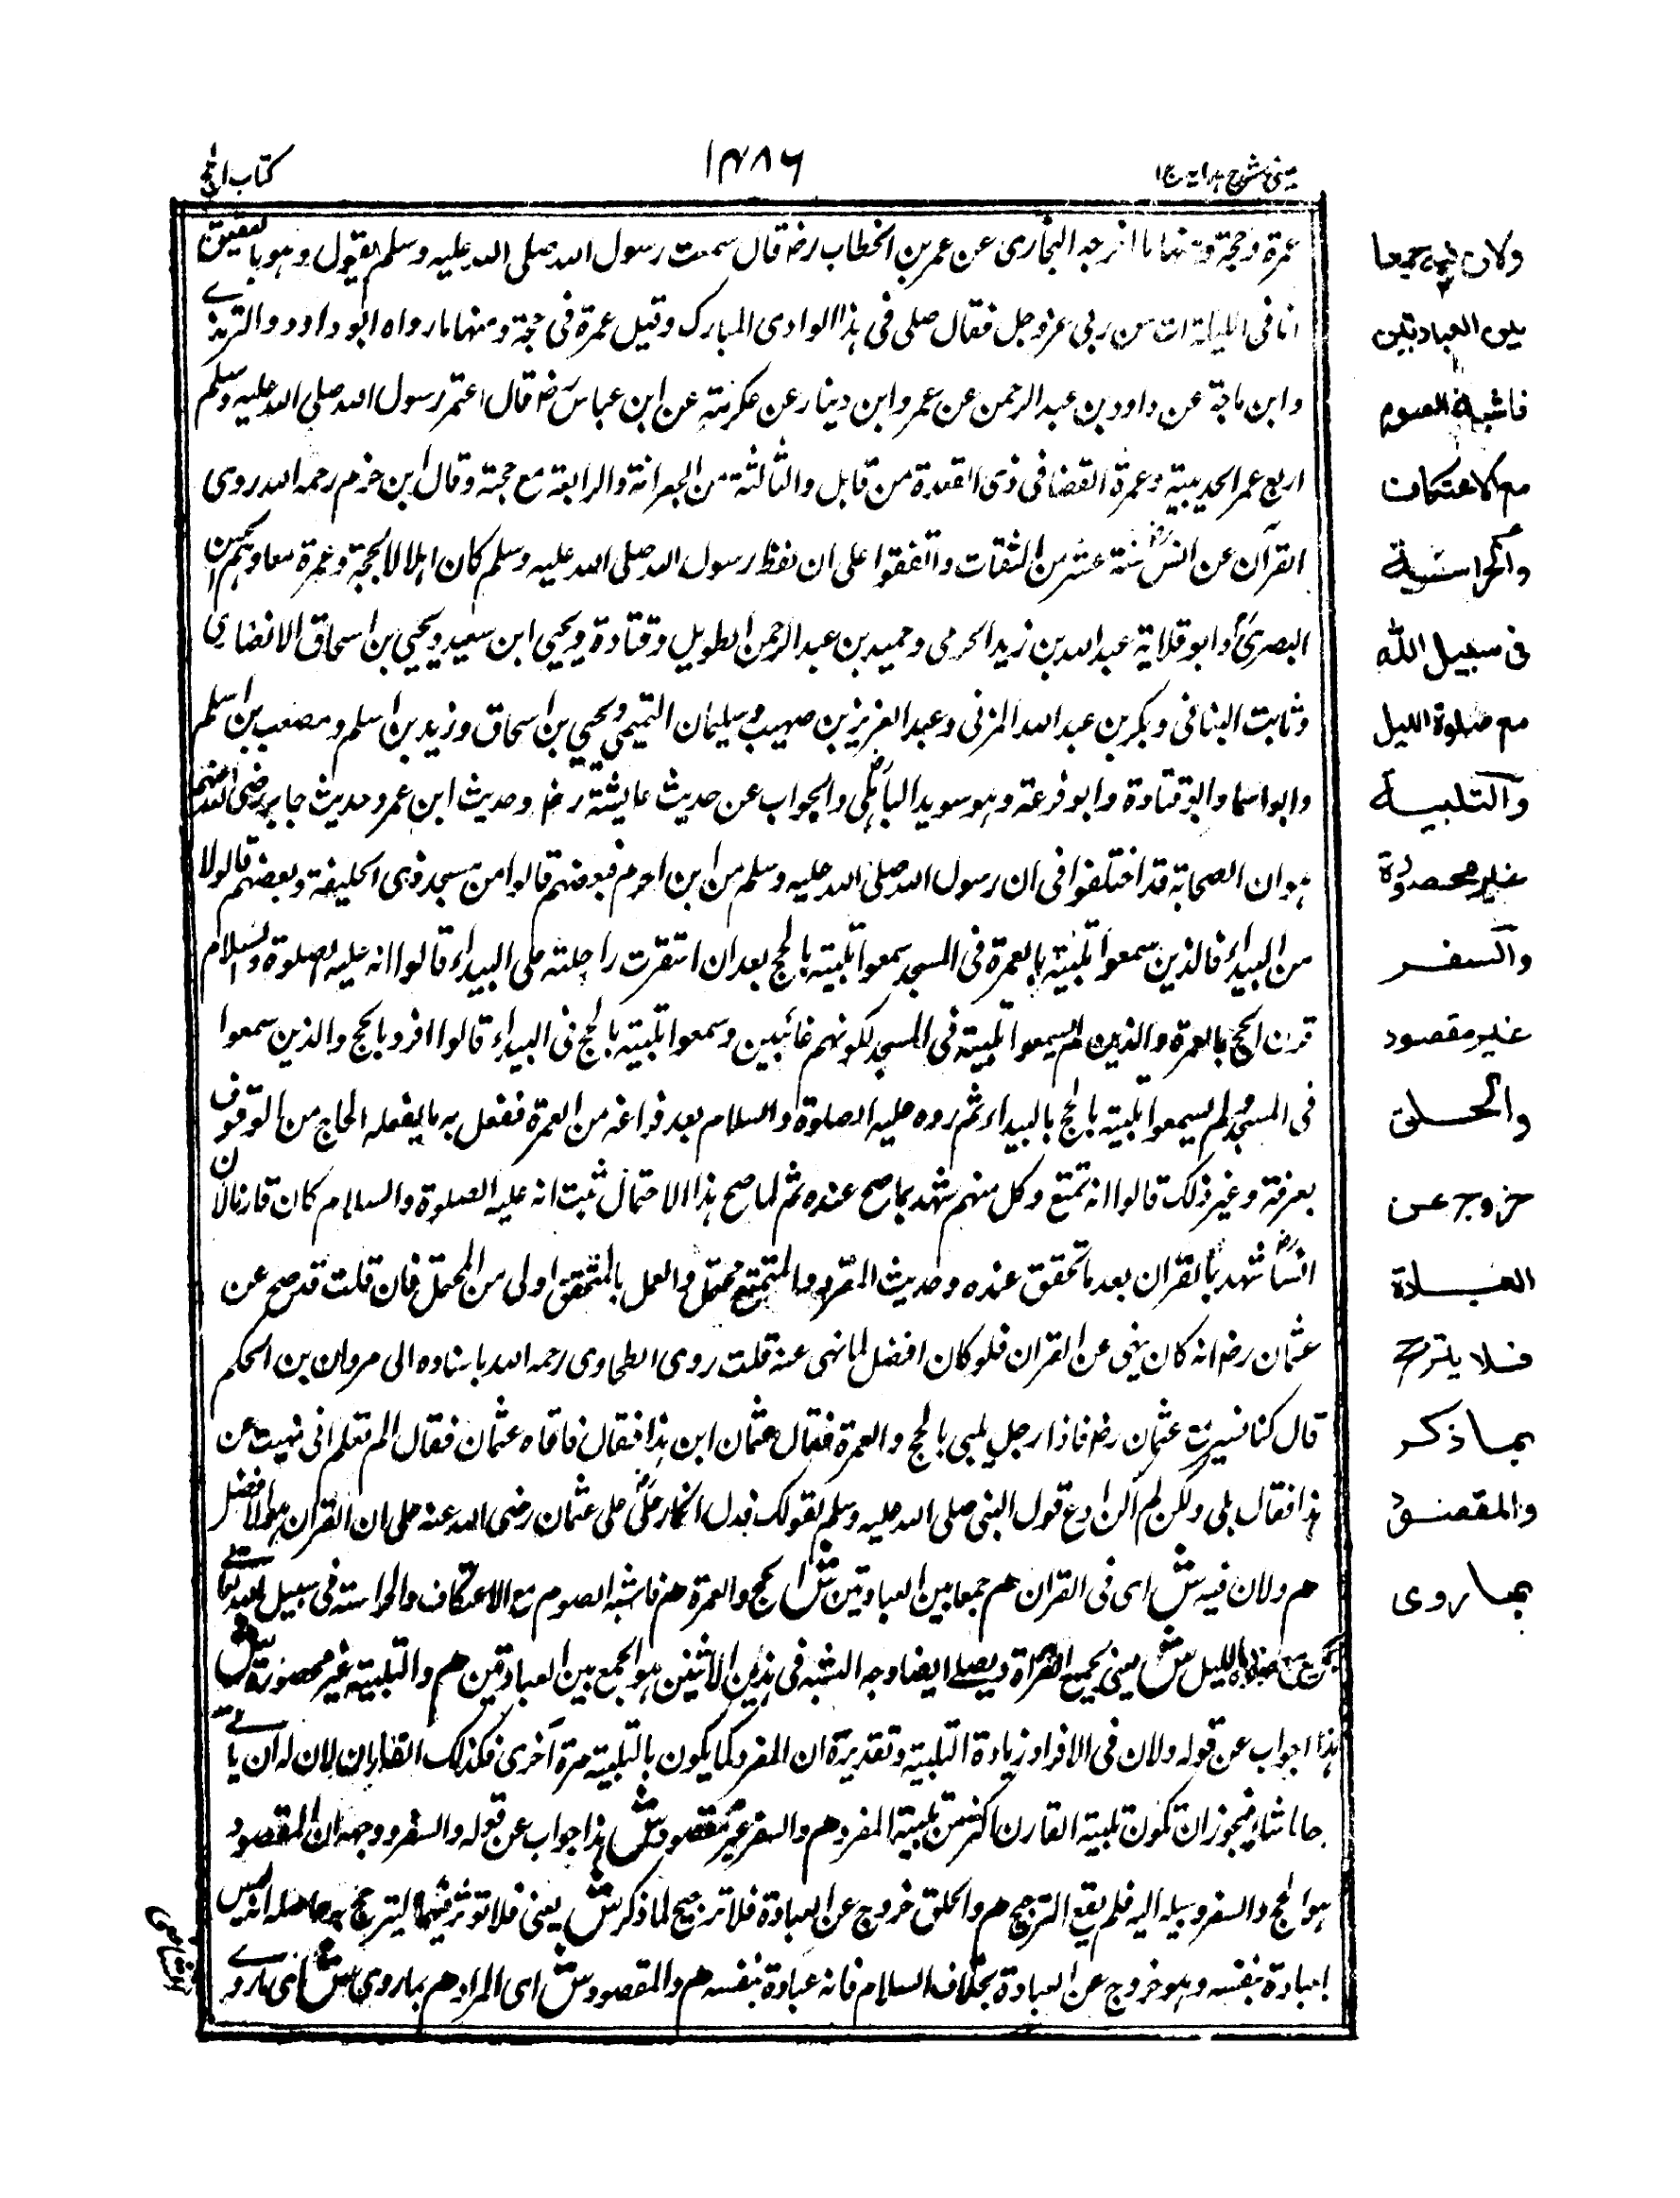 عینی شرح ہدایہ ج۱
۱۴۸۶
کتاب الحج
عمرة وحجة ومنها ما اخرجه البخاری عن عمر بن الخطاب رض قال سمعت رسول الله صلی الله علیه وسلم یقول وهو بالعقیق
اتانی اللیلة ات من ربی عز وجل فقال صلی فی هذا الوادی المبارک وقیل عمرة فی حجة ومنها ما رواه ابو داود والترمذے
وابن ماجة عن داود بن عبد الرحمن عن عمرو ابن دینار عن عکرمته عن ابن عباس رض قال اعتمر رسول الله صلی الله علیه وسلم
اربع عمر الحدیبیة وعمرة القضا فی ذی القعدة من قابل والثالثة من الجعرانة والرابعة مع حجته وقال ابن حزم رحمه الله روی
القرآن عن انس رض ستة عشر من الثقات واتفقوا علی ان لفظ رسول الله صلی الله علیه وسلم کان اهلالا بحجة وعمرة معا وهم الحسن
البصری وابو قلابة عبد الله بن زید الحرمی وحمید بن عبد الرحمن الطویل وقتادة ویحیی ابن سعید ویحیی بن اسحاق الانصاری
وثابت البنانی وبکر بن عبد الله المزنی وعبد العزیز بن صهیب وسلیمان التیمی ویحیی بن اسحاق وزید بن اسلم ومصعب بن اسلم
وابو اسما وابو قتادة وابو قزعة وهو سوید الباهلی والجواب عن حدیث عایشة رض وحدیث ابن عمر وحدیث جابر رضی الله عنهم
هو ان الصحابة قد اختلفوا فی ان رسول الله صلی الله علیه وسلم من این احرم فبعضهم قالوا من مسجد ذی الحلیفة وبعضهم قالوا لا
من البیداء فالذین سمعوا تلبیته بالعمرة فی المسجد سمعوا تلبیته بالحج بعد ان استقرت راحلته علی البیداء قالوا انه علیه الصلوة والسلام
قرن الحج بالعمرة والذین لم یسمعوا تلبیته فی المسجد لکونهم غائبین وسمعوا تلبیته بالحج فی البیداء قالوا افرد بالحج والذین سمعوا
فی المسجد ولم یسمعوا تلبیته بالحج بالبیداء ثم روه علیه الصلوة والسلام بعد فراغه من العمرة ففعل به ما یفعله الحاج من الوقوف
بعرفة وغیر ذلک قالوا انه تمتع وکل منهم شهد بما صح عنده ثم لما صح هذا الاحتمال ثبت انه علیه الصلوة والسلام کان قارنا لان
انسا رض شهد بالقران بعد ما تحقق عنده وحدیث المفرد والمتمتع محتمل والعمل بالمتحقق اولی من المحتمل فان قلت قد صح عن
عثمان رض انه کان ینهی عن القران فلو کان افضل لما نهی عنه قلت روی الطحاوی رحمه الله باسناده الی مروان بن الحکم
قال کنا نسیر مع عثمان رض فاذا رجل یلبی بالحج والعمرة فقال عثمان این هذا فقال فاتاه عثمان فقال الم تعلم انی نهیت عن
هذا فقال بلی ولکن لم اکن ادع قول النبی صلی الله علیه وسلم بقولک فدل انکار علی علی عثمان رضی الله عنه علی ان القران هو الافضل
هم ولان فیه ش ای فی القران هم جمعا بین العبادتین ش الحج والعمرة هم فاشبه الصوم مع الاعتکاف والحراسته فی سبیل الله تعالے
اللیل ش یعنی ویصلے ایضا وجه الشبه فی هذین الاثنین هو الجمع بین العبادتین هم والتلبیة غیر محصورة ش
هذا جواب عن قوله ولان فی الافراد زیادة التلبیة وتقدیره ان المفرد کما یکون بالتلبیة مرة آخری فکذلک القارن لان له ان یاتے
فیجوز ان تکون تلبیة القارن اکثر من تلبیة المفرد هم والسفر غیر مقصود ش هذا جواب عن قوله والسفر ووجهه ان المقصود
هو الحج والسفر وسیله الیه فلم یقع الترجیح هم والحلق خروج عن العبادة فلا ترجیح لما ذکر ش یعنی فلا توثر حاصله انه لیس
بعبادة بنفسه وهو خروج عن العبادة بخلاف السلام فانه عبادة بنفسه هم والمقصود ش ای المراد هم بما روی ش ای ما روے
ولان فیه جمعا
بین العبادتین
فاشبه الصوم
مع الاعتکاف
والحراسة
فی سبیل الله
مع صلوة اللیل
والتلبیة
غیر محصورة
والسفر
غیر مقصود
والحلق
خروج عن
العبادة
فلا یترجح
بما ذکر
والمقصود
بما روی